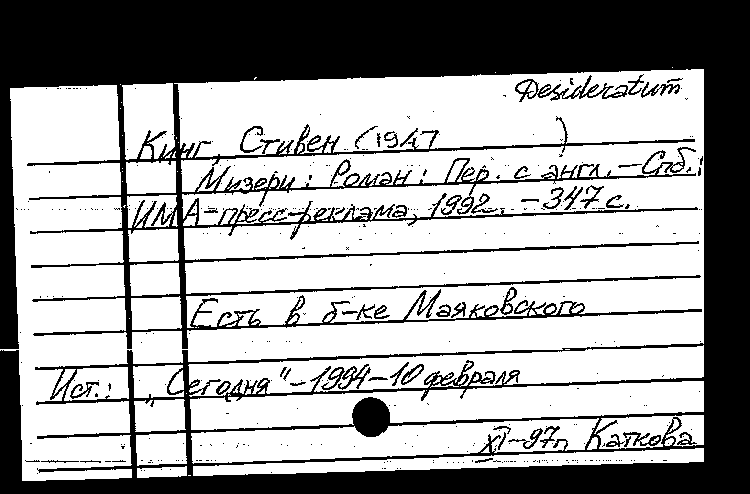 Desideratum
Кинг, Стивен (1947 )
Мизери: Роман: Пер. с англ. – Спб.:
ИМА-пресс-реклама, 1992. – 347 с.
Есть в б-ке Маяковского
Ист.: „Сегодня“ – 1994 – 10 февраля
XI-97г. Каткова